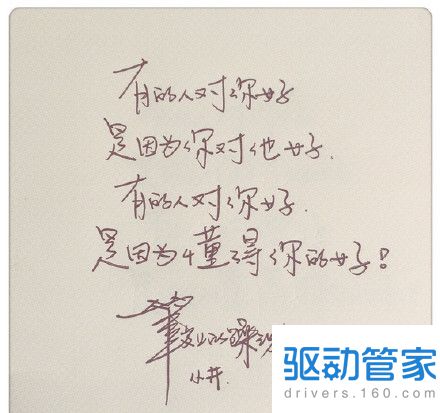 有的人对你好
是因为你对他好.
有的人对你好.
是因为懂得你的好!
小井.
驱动管家
drivers.160.com